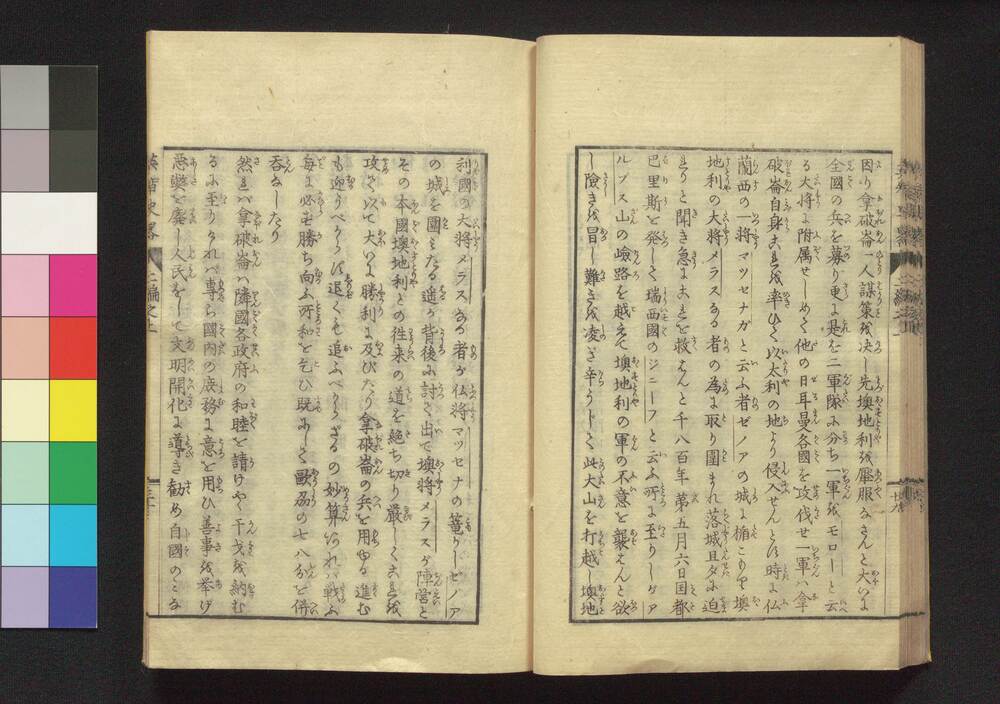 因り拿破崙一人謀策を决し先墺地利を壓服なさんと大いに
全國の兵を募り更に是を二軍隊に分ち一軍をモローと云
る大将に附属せしめて他の日耳曼各國を攻伐せ一軍ハ拿
破崙自身これを率ひて以太利の地より侵入せんとす時に仏
蘭西の一将マツセナガと云ふ者ゼノアの城に楯こもりて墺
地利の大将メラスなる者の為に取り圍まれ落城且夕に迫
れりと聞き急にこれを救はんと千八百年第五月六日国都
巴里斯を発して瑞西國のジニーフと云ふ所に至りしがア
ルプス山の嶮路を越えて墺地利の軍の不意を襲はんと欲
し險きを冒し難きを凌ぎ辛うして此大山を打越し墺地
利國の大将メラスなる者が仏将マツセナの篭りしゼノア
の城を圍みたる遥か背後に討て出で墺将メラスが陣営と
その本國墺地利との徃来の道を絶ち切り厳しくこれを
攻て以て大いに勝利に及びたり拿破崙の兵を用ゆる進む
も迎うべからず退くも追ふべからざるの妙算あれバ戦ふ
毎に必ず勝ち向ふ所和を乞ひ既にして歐羅の七八分を併
呑なしたり
然れバ拿破崙ハ隣國各政府の和睦を請けや干戈を納む
るに至りけれバ専ら國内の庶務に意を用ひ善事を挙げ
惡獘を廃し人民をして文明開化に導き勧め自國のことな